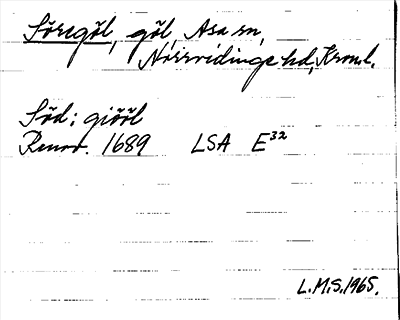 Söregöl, göl, Asa sn,
Norrvidinge hd, Kron.l.
Söd: giööl
Renov. 1689 LSA E³²
L.M.S. 1965.